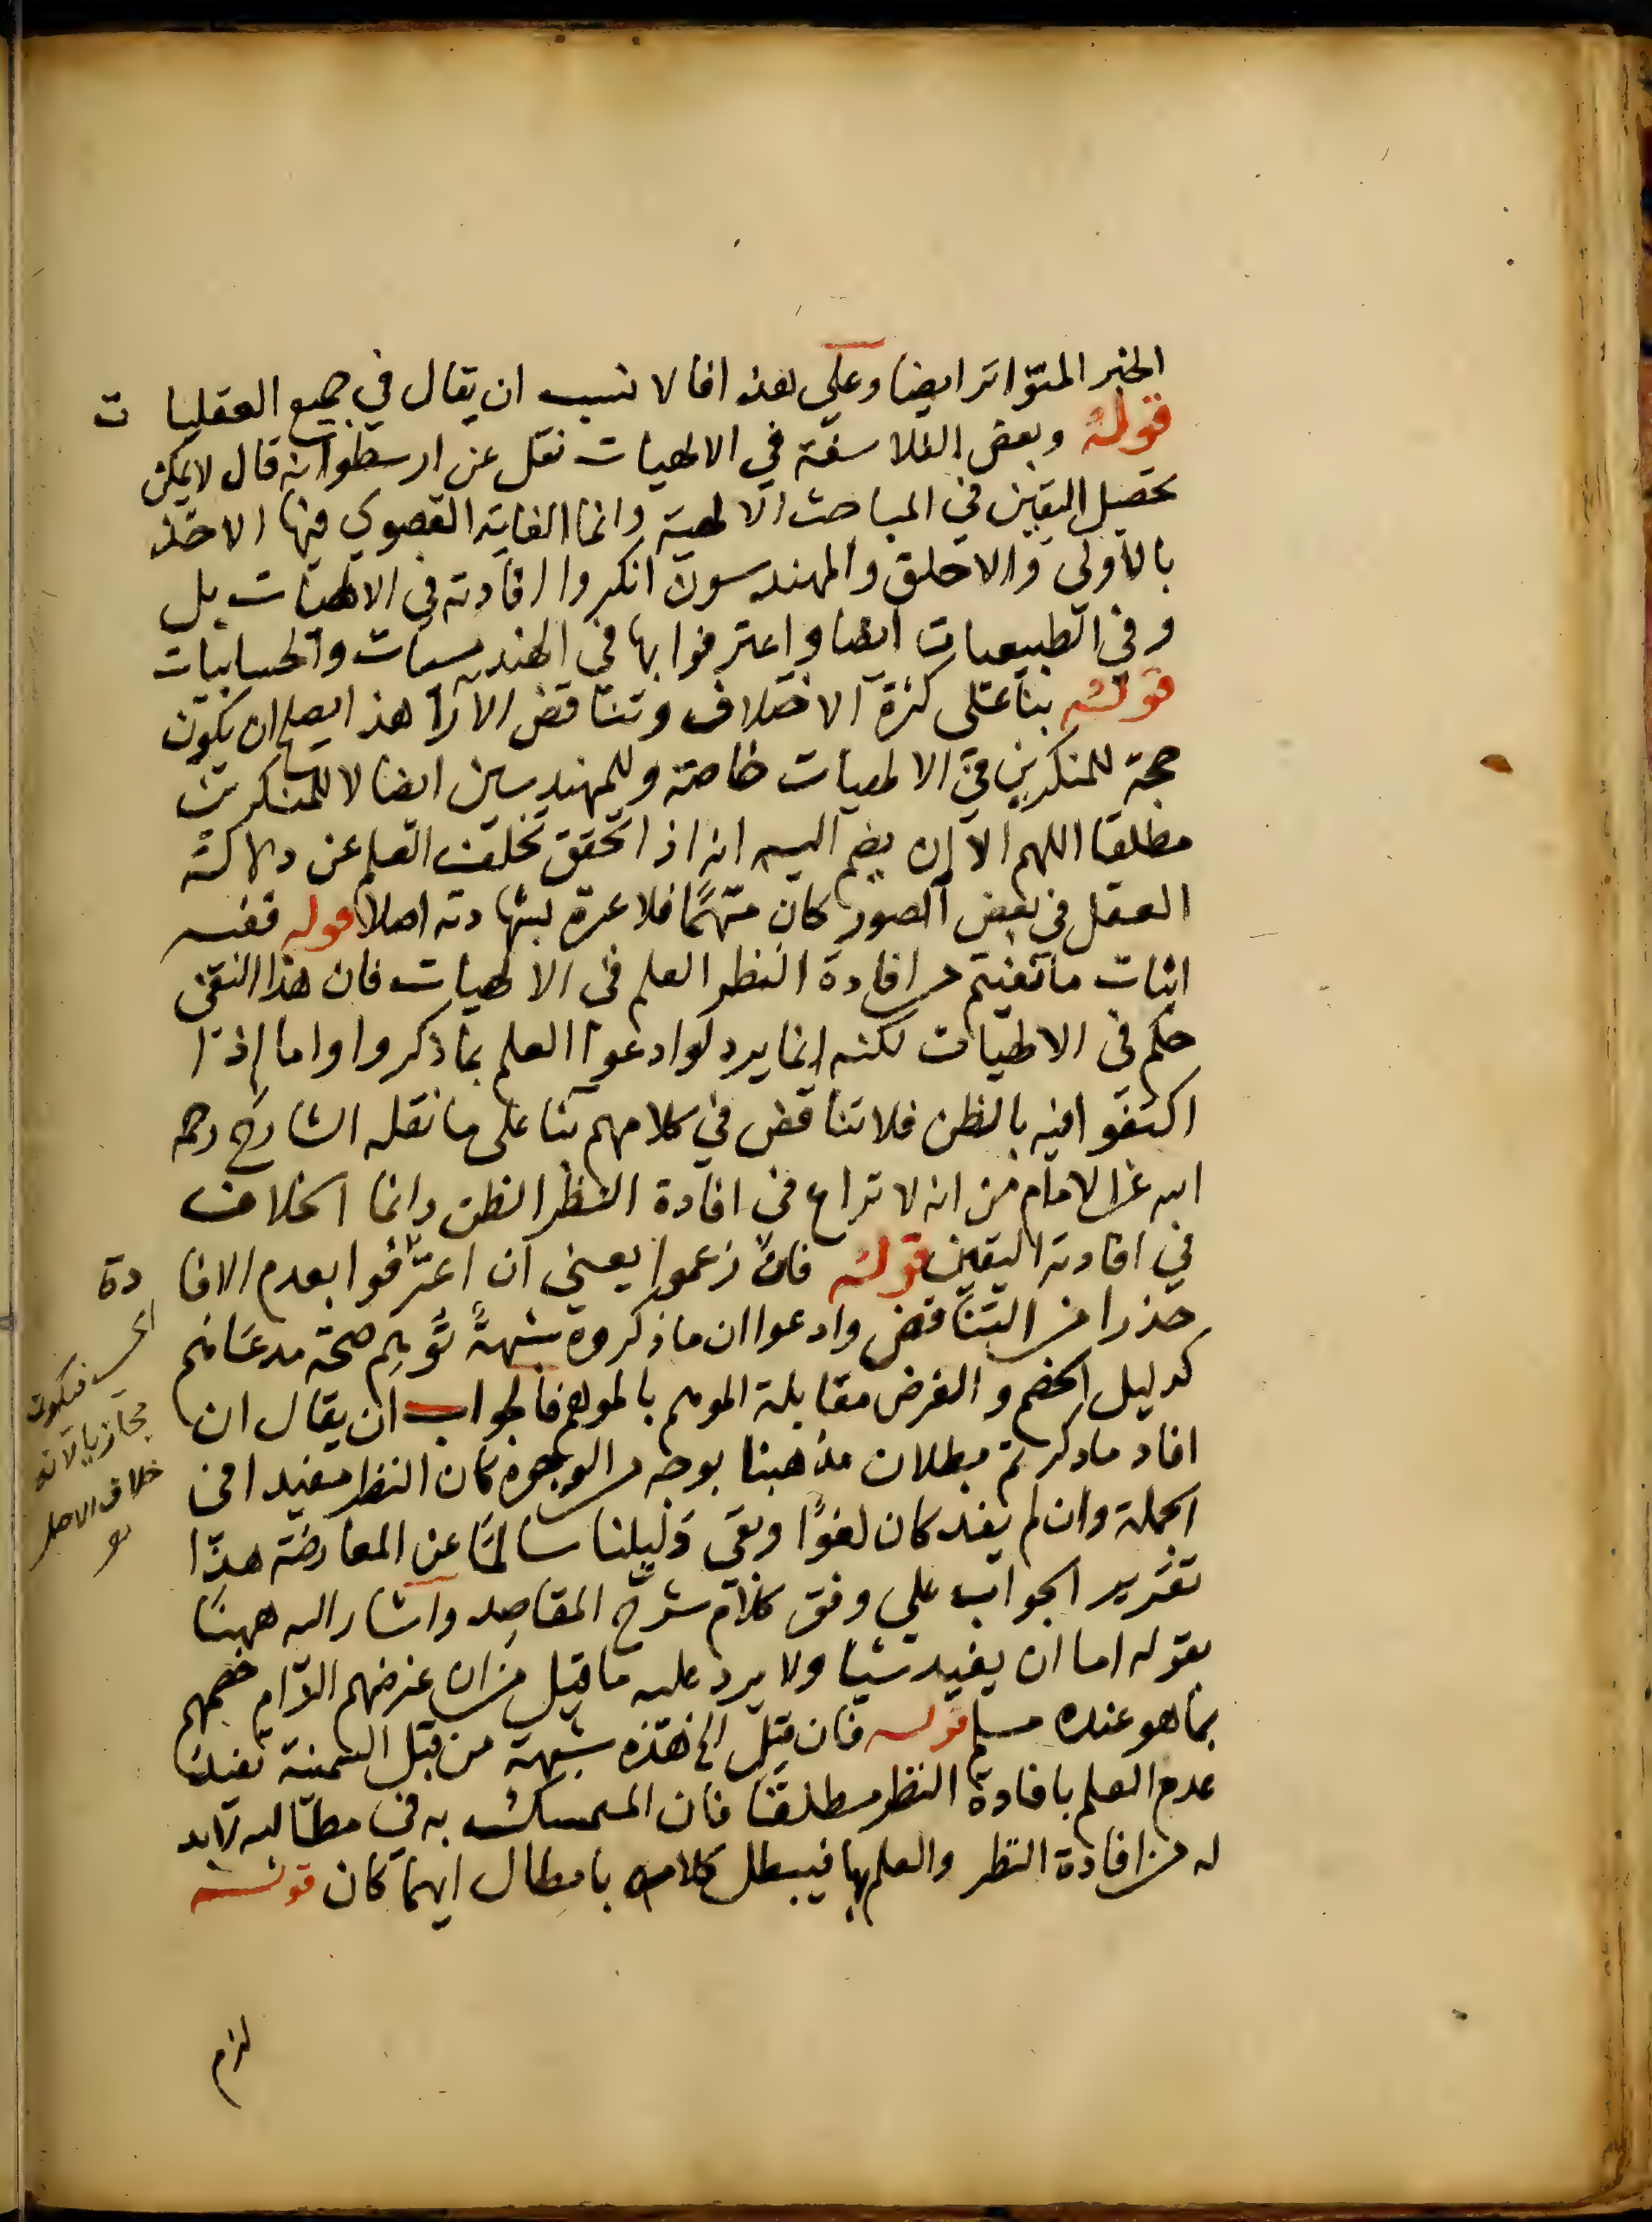 الخبر المتواتر ايضا وعلى هذا فالا نسب ان يقال في جميع العقليات
قوله وبعض الفلاسفة في الالهيات نقل عن ارسطو انه قال لا يمكن
تحصيل اليقين في المباحث الالهية وانما الغاية القصوى فيها الاخذ
بالاولى والاخلق والمهندسون انكروا افادته في الالهيات بل
وفي الطبيعيات ايضا واعترفوا بها في الهندسيات والحسابيات
قوله بنا على كثرة الاختلاف وتناقض الآرا هذا يصلح ان يكون
حجة للمنكرين في الالهيات خاصة وللمهندسين ايضا لا للمنكرين
مطلقا اللهم الا ان يضم اليه انه اذا تحقق تخلف العلم عن دلالته
العقل في بعض الصور كان متهما فلا عبرة بشهادته اصلا قوله ففيه
اثبات ما نفيتم من افادة النظر العلم في الالهيات فان هذا النفي
حكم في الالهيات لكنه انما يرد لو ادعوا العلم بما ذكروا واما اذا
اكتفوا فيه بالظن فلا تناقض في كلامهم بنا على ما نقله الشارح رحمه
الله عن الامام من انه لا نزاع في افادة النظر الظن وانما الخلاف
في افادته اليقين قوله فان زعموا يعني ان اعترفوا بعدم الافادة
حذرا من التناقض وادعوا ان ما ذكروه شبهة توهم صحة مدعانهم
كدليل الخصم والغرض مقابلة الموهم بالموهم فالجواب ان يقال ان
افاد ما ذكرتم بطلان مذهبنا بوجه من الوجوه كان النظر مفيدا في
الجملة وان لم يفد كان لغوا وبقي دليلنا سالما عن المعارضة هذا
تقرير الجواب على وفق كلام شرح المقاصد واشار اليه ههنا
بقوله اما ان يفيد شيا ولا يرد عليه ما قيل من ان غرضهم الزام خصمهم
بما هو عنده مسلم قوله فان قيل الخ هذه شبهة من قبل السمنية تفيد
عدم العلم بافادة النظر مطلقا فان المتمسك به في مطالبه لابد
له من افادة النظر والعلم بها فيبطل كلامه بابطال ايهما كان قوله
لزم
فيكون
مجازيا لانه
خلاف الاصل